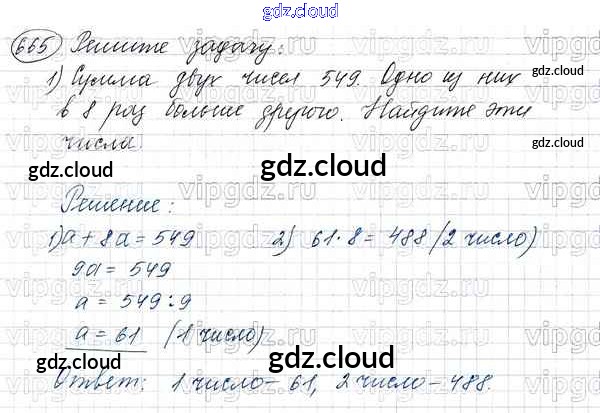 gdz.cloud
665 Решите задачу:
1) Сумма двух чисел 549. Одно из них
gdz.cloud
в 8 раз больше другого. Найдите эти
gdz.cloud
числа.
gdz.cloud
gdz.cloud
Решение:
gdz.cloud
1) a + 8a = 549 2) 61·8 = 488 (2 число)
9a = 549
a = 549:9
gdz.cloud
a = 61 (1 число)
gdz.cloud
gdz.cloud
Ответ: 1 число - 61, 2 число - 488.